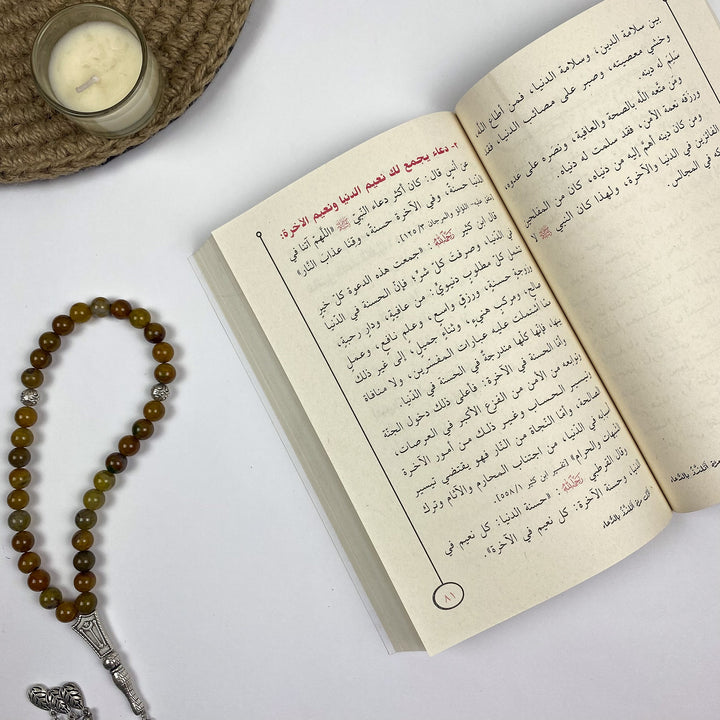 بين سلامة الدين، وسلامة الدنيا، فمن أطاع الله
وخشي معصيته، وصبر على مصائب الدنيا، فقد
سَلِم له دينه.
ومَن متَّعه الله بالصحة والعافية، ونصره على عدوه،
ورزقه نعمة الأمن، فقد سلمت له دنياه.
ومن كان دينه أهمَّ إليه من دنياه، كان من المفلحين
الفائزين في الدنيا والآخرة، ولهذا كان النبي ﷺ لا
في المجالس.
٢- دعاء يجمع لك نعيم الدنيا ونعيم الآخرة:
عن أنس قال: كان أكثر دعاء النَّبيِّ ﷺ «اللَّهُمَّ آتنا في
الدُّنيا حسنةً، وفي الآخرة حسنةً، وقنا عذابَ النَّار»
اللؤلؤ والمرجان ٣/١٢٥].
قال ابن كثير رحمه الله: «جمعت هذه الدعوة كلَّ خيرٍ
في الدُّنيا، وصرفت كلَّ شرٍّ؛ فإنَّ الحسنة في الدُّنيا
تشمل كلَّ مطلوبٍ دنيويٍّ: من عافيةٍ، ودارٍ رحبةٍ،
وزوجةٍ حسنةٍ، ورزقٍ واسعٍ، وعلمٍ نافعٍ، وعملٍ
صالحٍ، ومركبٍ هنيءٍ، وثناءٍ جميلٍ، إلى غير ذلك
ممَّا اشتملت عليه عبارات المفسِّرين، ولا منافاة
بينها، فإنَّها كلَّها مندرجةٌ في الحسنة في الدُّنيا.
وأمَّا الحسنة في الآخرة: فأعلى ذلك دخول الجنَّة
وتوابعه من الأمن من الفزع الأكبر في العرصات،
وتيسير الحساب وغير ذلك من أمور الآخرة
الصَّالحة، وأمَّا النَّجاة من النَّار فهو يقتضي تيسير
أسبابه في الدُّنيا، من اجتناب المحارم والآثام وترك
الشُّبهات والحرام» [تفسير ابن كثير ١/٥٥٨].
وقال القرطبي رحمه الله: «حسنة الدنيا: كل نعيم في
الدنيا، وحسنة الآخرة: كل نعيم في الآخرة».
٨١